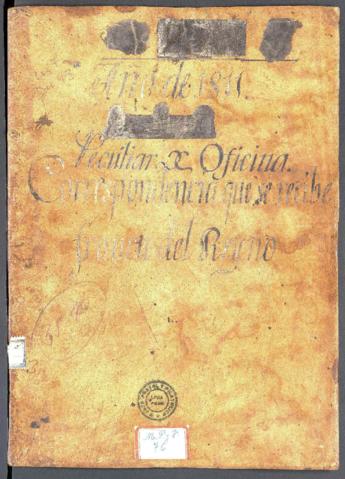 Año de 1811.
Peculiar de Oficina.
Correspondencia que se recibe
del Reyno
76